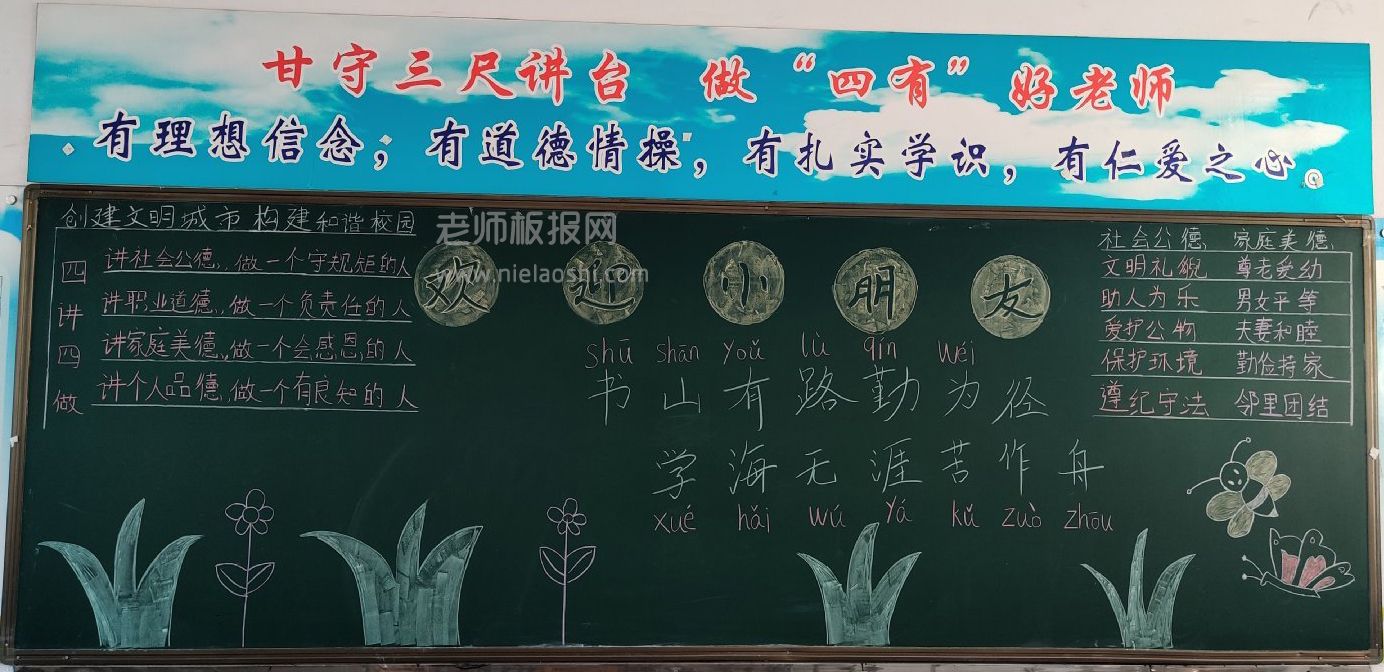 甘守三尺讲台 做“四有”好老师
有理想信念，有道德情操，有扎实学识，有仁爱之心。
创建文明城市 构建和谐校园
四讲四做
讲社会公德，做一个守规矩的人
讲职业道德，做一个负责任的人
讲家庭美德，做一个会感恩的人
讲个人品德，做一个有良知的人
老师板报网
www.nielaoshi.com
欢迎小朋友
shū shān yoǔ lù qín wéi
书山有路勤为径
学海无涯苦作舟
xué hǎi wú yá kǔ zuò zhōu
社会公德、家庭美德、
文明礼貌 尊老爱幼
助人为乐 男女平等
爱护公物 夫妻和睦
保护环境 勤俭持家
遵纪守法 邻里团结